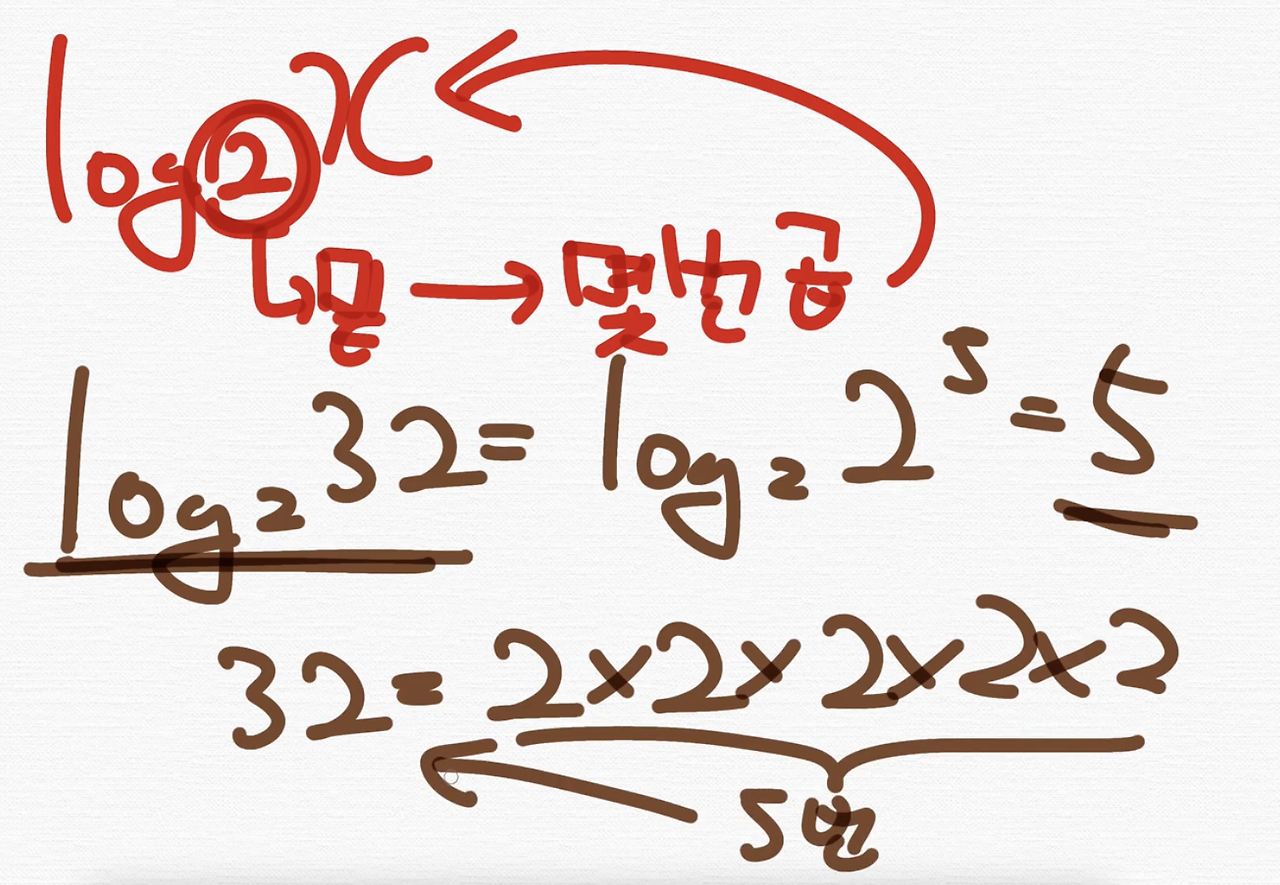 log₂ x
↳ 밑 → 몇번 곱
log₂ 32 = log₂ 2⁵ = 5
32 = 2×2×2×2×2
5번